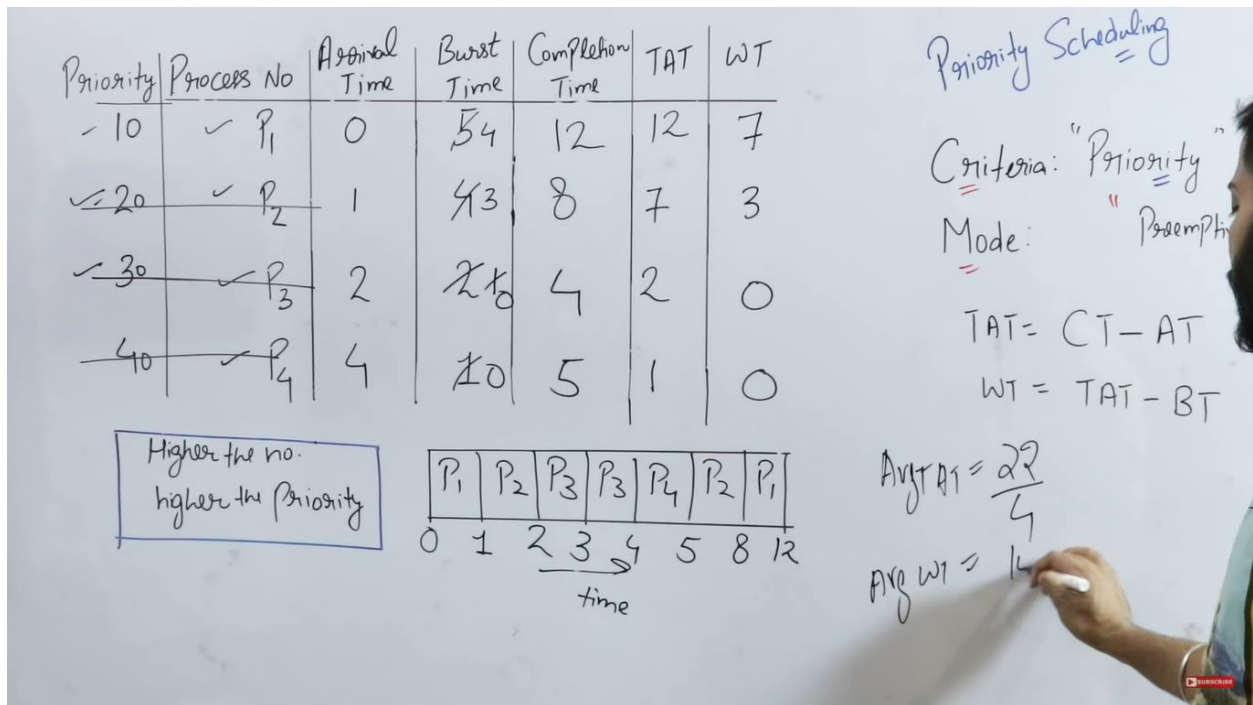 Priority Process No Arrival Time Burst Time Completion Time TAT WT
10 P1 0 5 4 12 12 7
20 P2 1 4 3 8 7 3
30 P3 2 2 1 0 4 2 0
40 P4 4 1 0 5 1 0
Higher the no.
higher the Priority
P1 P2 P3 P3 P4 P2 P1
0 1 2 3 4 5 8 12
time
Priority Scheduling
Criteria: "Priority"
Mode: " Preempti
TAT = CT - AT
WT = TAT - BT
Avg TAT = 22
4
Avg WT =
SUBSCRIBE